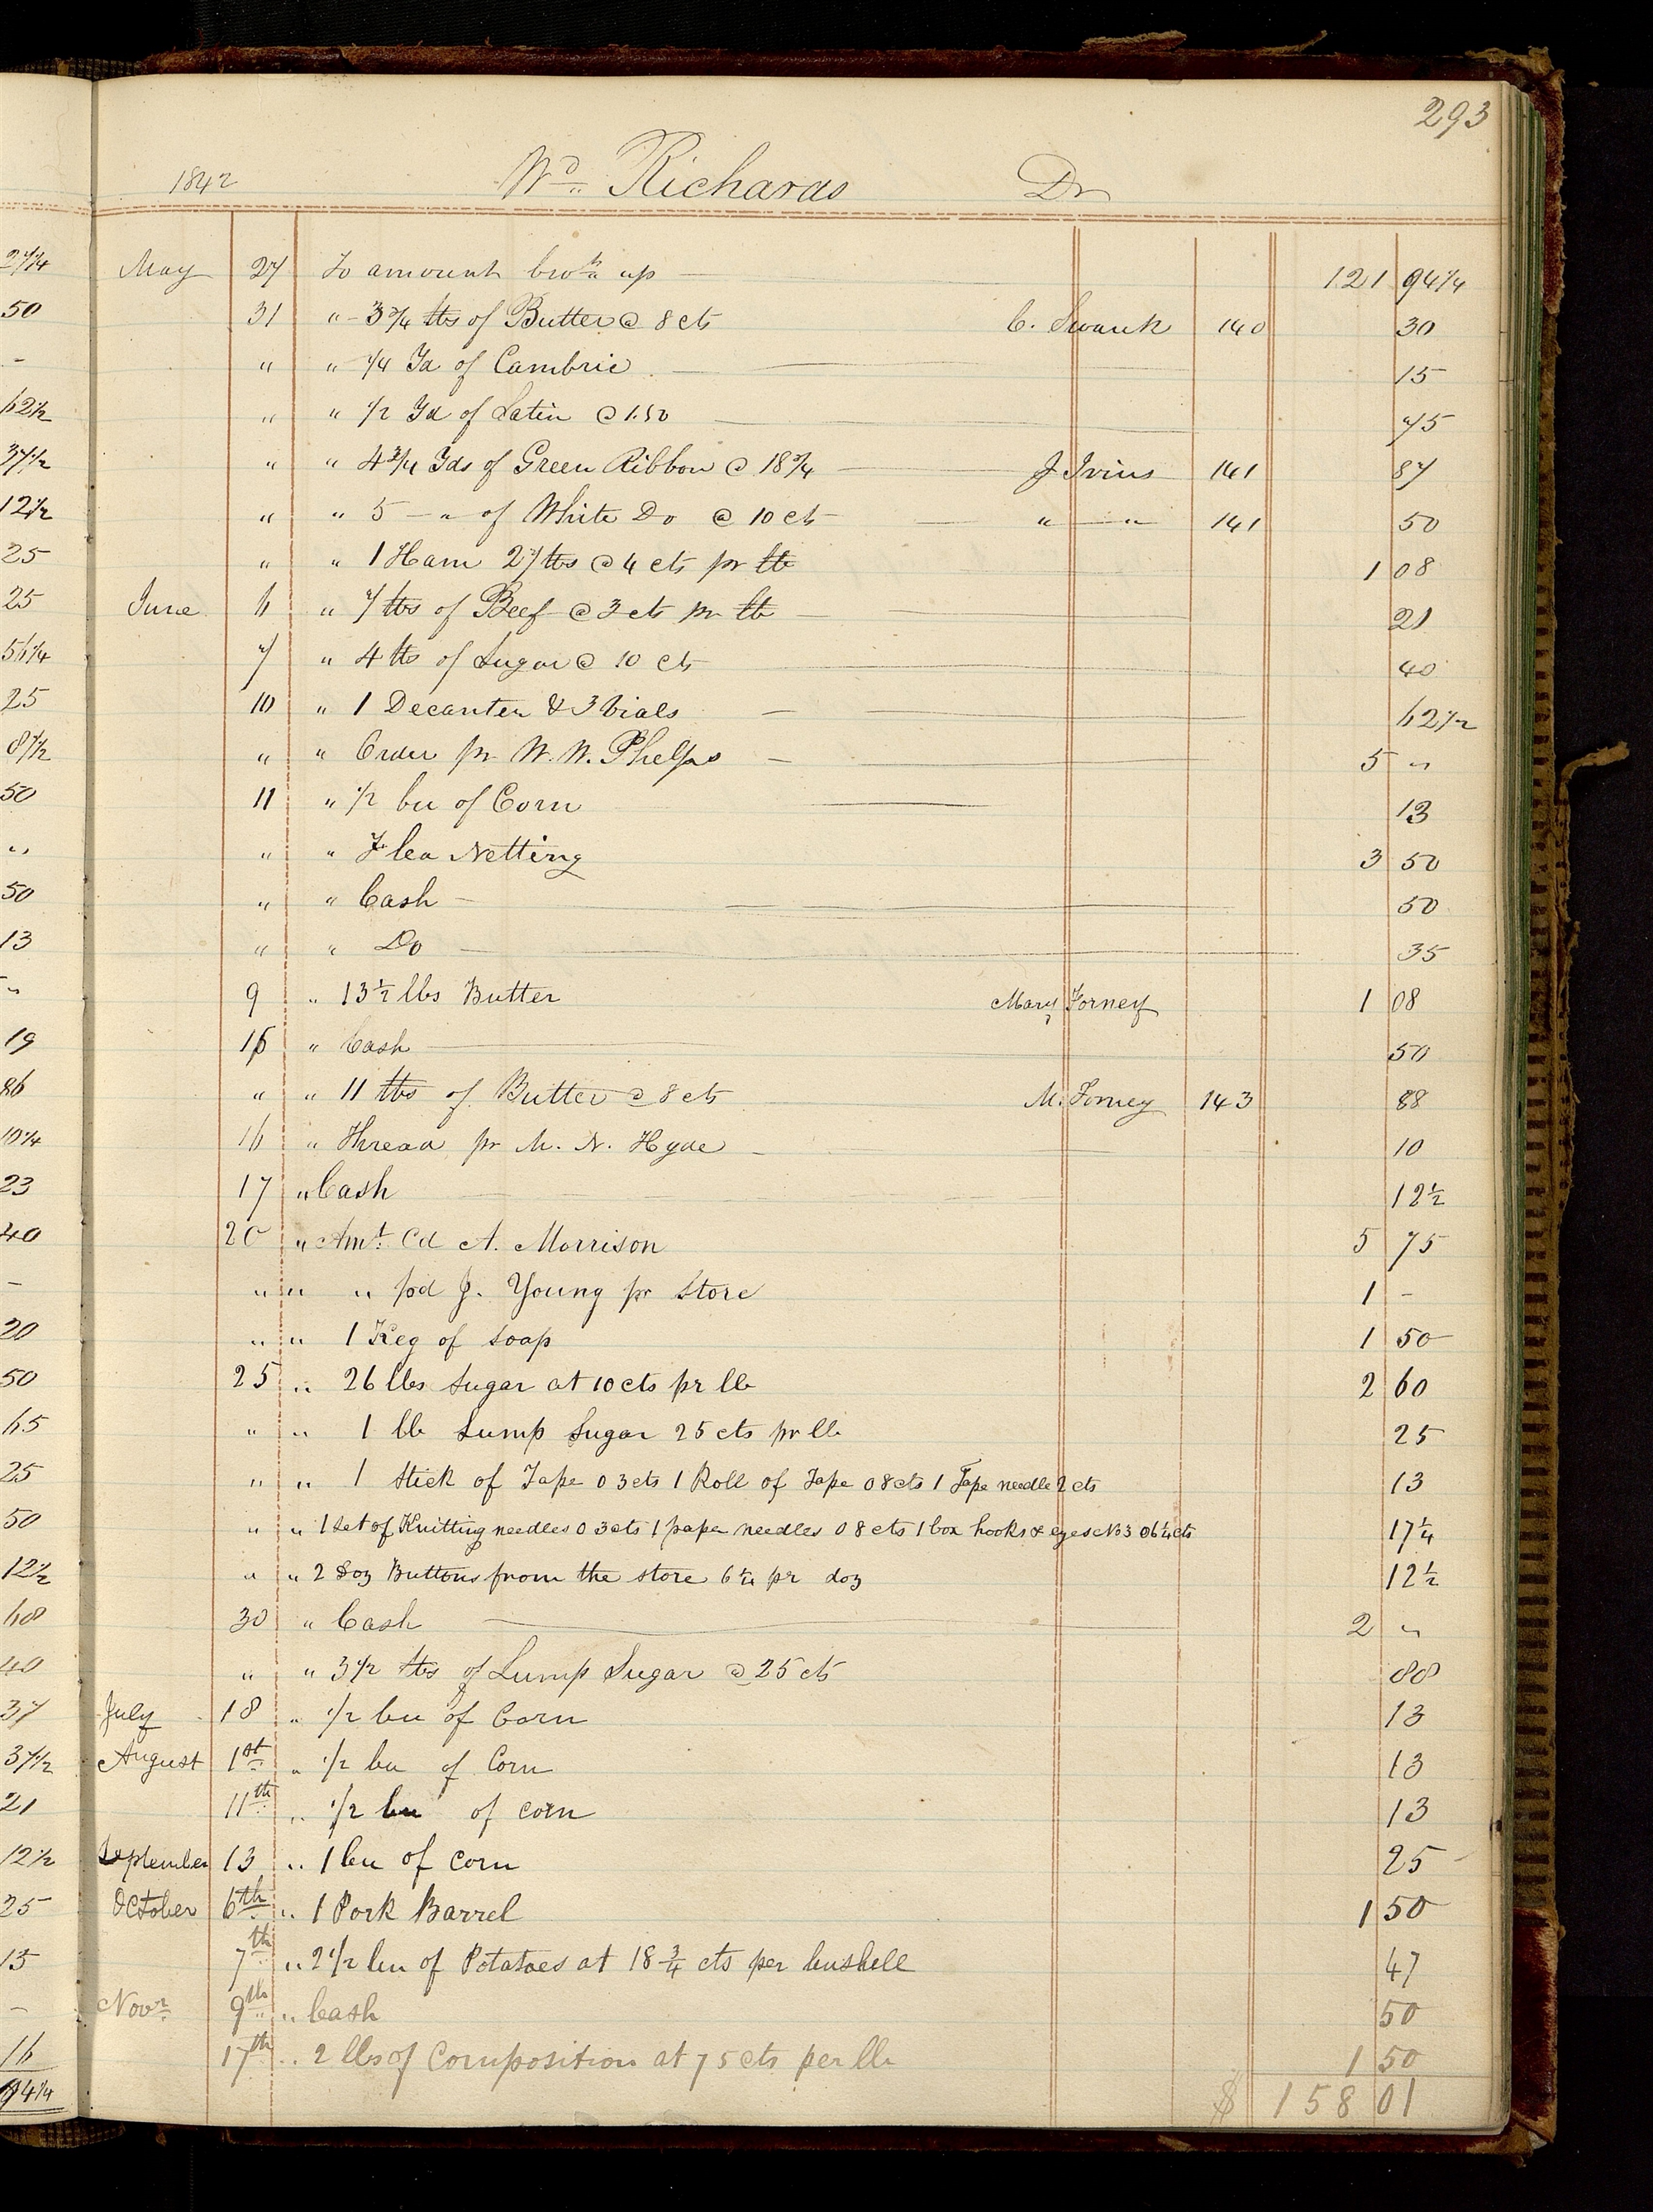 293
1842 Wd Richards Dr
May 27 To amount brot up 121 94 1/4
31 " 3 3/4 lbs of Butter @ 8 cts C. Swank 140 30
" " 1/4 Yd of Cambric 15
" " 1/2 Yd of Satin @ 1.50 75
" " 4 3/4 Yds of Green Ribbon @ 18 3/4 J Ivins 141 87
" " 5 " of White Do @ 10 cts " " 141 50
" " 1 Ham 27 lbs @ 4 cts pr lb 1 08
June 6 " 7 lbs of Beef @ 3 cts pr lb 21
7 " 4 lbs of Sugar @ 10 cts 40
10 " 1 Decanter & 3 Vials 62 1/2
" " Order pr W. W. Phelps 5 "
11 " 1/2 bu of Corn 13
" " Netting 3 50
" " Cash 50
" " Do 35
9 " 13 1/2 lbs Butter Mary Forney 1 08
15 " Cash 50
" " 11 lbs of Butter @ 8 cts M. Forney 143 88
16 " Thread pr M. N. Hyde 10
17 " Cash 12 1/2
20 " Amt Cd A. Morrison 5 75
" " " pd J. Young pr Store 1 -
" " 1 Keg of soap 1 50
25 " 26 lbs Sugar at 10 cts pr lb 2 60
" " 1 lb Lump Sugar 25 cts pr lb 25
" " 1 Stick of Tape 03 cts 1 Roll of Tape 08 cts 1 Tape needle 2 cts 13
" " 1 Set of Knitting needles 03 cts 1 paper needles 08 cts 1 box hooks & eyes No 3 06 1/4 cts 17 1/4
" " 2 Doz Buttons from the store 6 1/4 pr doz 12 1/2
30 " Cash 2 "
" " 3 1/2 lbs of Lump Sugar @ 25 cts 88
July 18 " 1/2 bu of Corn 13
August 1st " 1/2 bu of Corn 13
11th " 1/2 bu of corn 13
September 13 " 1 bu of corn 25
October 6th " 1 Pork Barrel 1 50
7th " 2 1/2 bu of Potatoes at 18 3/4 cts per bushell 47
Novr 9th " Cash 50
17th " 2 lbs of Composition at 75 cts per lb 1 50
$ 158 01